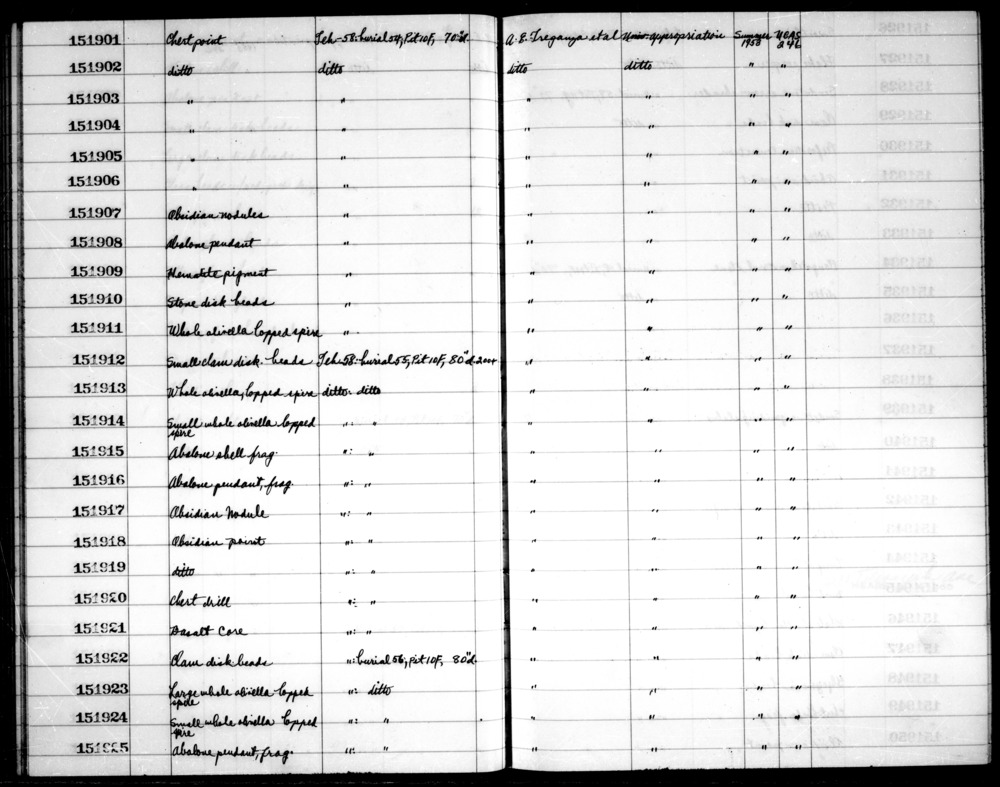 151901 Chert point Teh-58: burial 54, Pit 10F, 70"d. A. E. Treganza et al Univ. appropriation Summer 1953 UCAS 246
151902 ditto ditto ditto ditto " "
151903 " " " " " "
151904 " " " " " "
151905 " " " " "
151906 " " " " " "
151907 Obsidian nodules " " " " "
151908 Abalone pendant " " " " "
151909 Hematite pigment " " " " "
151910 Stone disk beads " " " " "
151911 Whole olivella lopped spire " " " " "
151912 Small clam disk beads Teh-58: burial 55, Pit 10F, 80"d. " " " "
151913 Whole olivella, lopped spire ditto: ditto " " " "
151914 Small whole olivella lopped
spire ": " " " " "
151915 Abalone shell frag. ": " " " " "
151916 Abalone pendant, frag. ": " " " " "
151917 Obsidian Nodule ": " " " " "
151918 Obsidian point ": " " " " "
151919 ditto ": " " " " "
151920 Chert drill ": " " " " "
151921 Basalt Core ": " " " " "
151922 Clam disk beads ": burial 56, Pit 10F, 80"d. " " " "
151923 Large whole olivella lopped
spire ": ditto " " " "
151924 Small whole olivella lopped
spire ": " " " " "
151925 Abalone pendant, frag. ": " " " " "